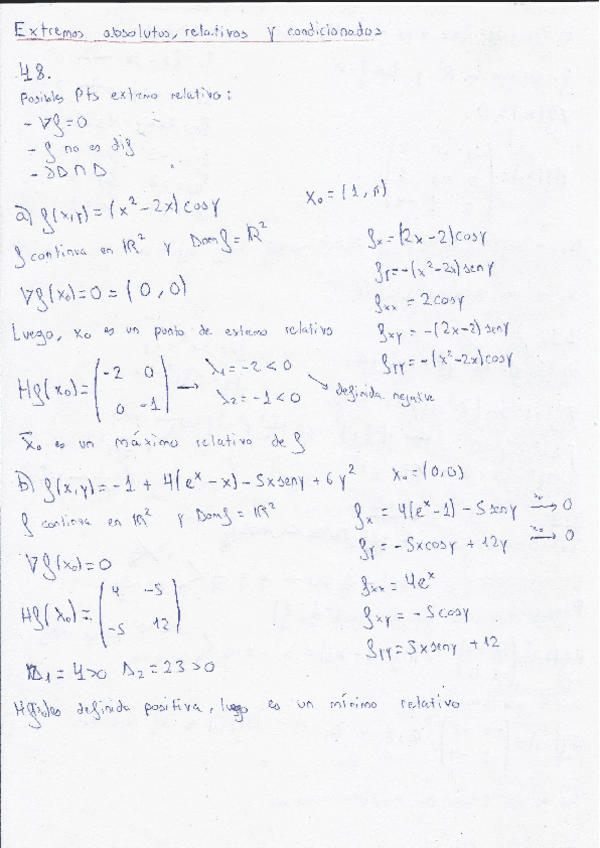 Extremos absolutos, relativos y condicionados
48.
Posibles Pts extremo relativo:
- ∇f=0
- f no es dif
- ∂D∩D
a) f(x,y)=(x²-2x)cosy
x₀=(1,π)
f continua en ℝ² y Domf=ℝ²
∇f(x₀)=0=(0,0)
Luego, x₀ es un punto de extremo relativo
fx=(2x-2)cosy
fy=-(x²-2x)seny
fxx=2cosy
fxy=-(2x-2)seny
fyy=-(x²-2x)cosy
Hf(x₀)=(-2 0
0 -1) → λ₁=-2<0
λ₂=-1<0
definida negativa
x̄₀ es un máximo relativo de f
b) f(x,y)=-1+4(eˣ-x)-5xseny+6y²
x₀=(0,0)
f continua en ℝ² y Domf=ℝ²
∇f(x₀)=0
fx=4(eˣ-1)-5seny →x₀ 0
fy=-5xcosy+12y →x₀ 0
fxx=4eˣ
fxy=-5cosy
fyy=5xseny+12
Hf(x₀)=(4 -5
-5 12)
Δ₁=4>0 Δ₂=23>0
Hf(x₀)es definida positiva, luego es un mínimo relativo